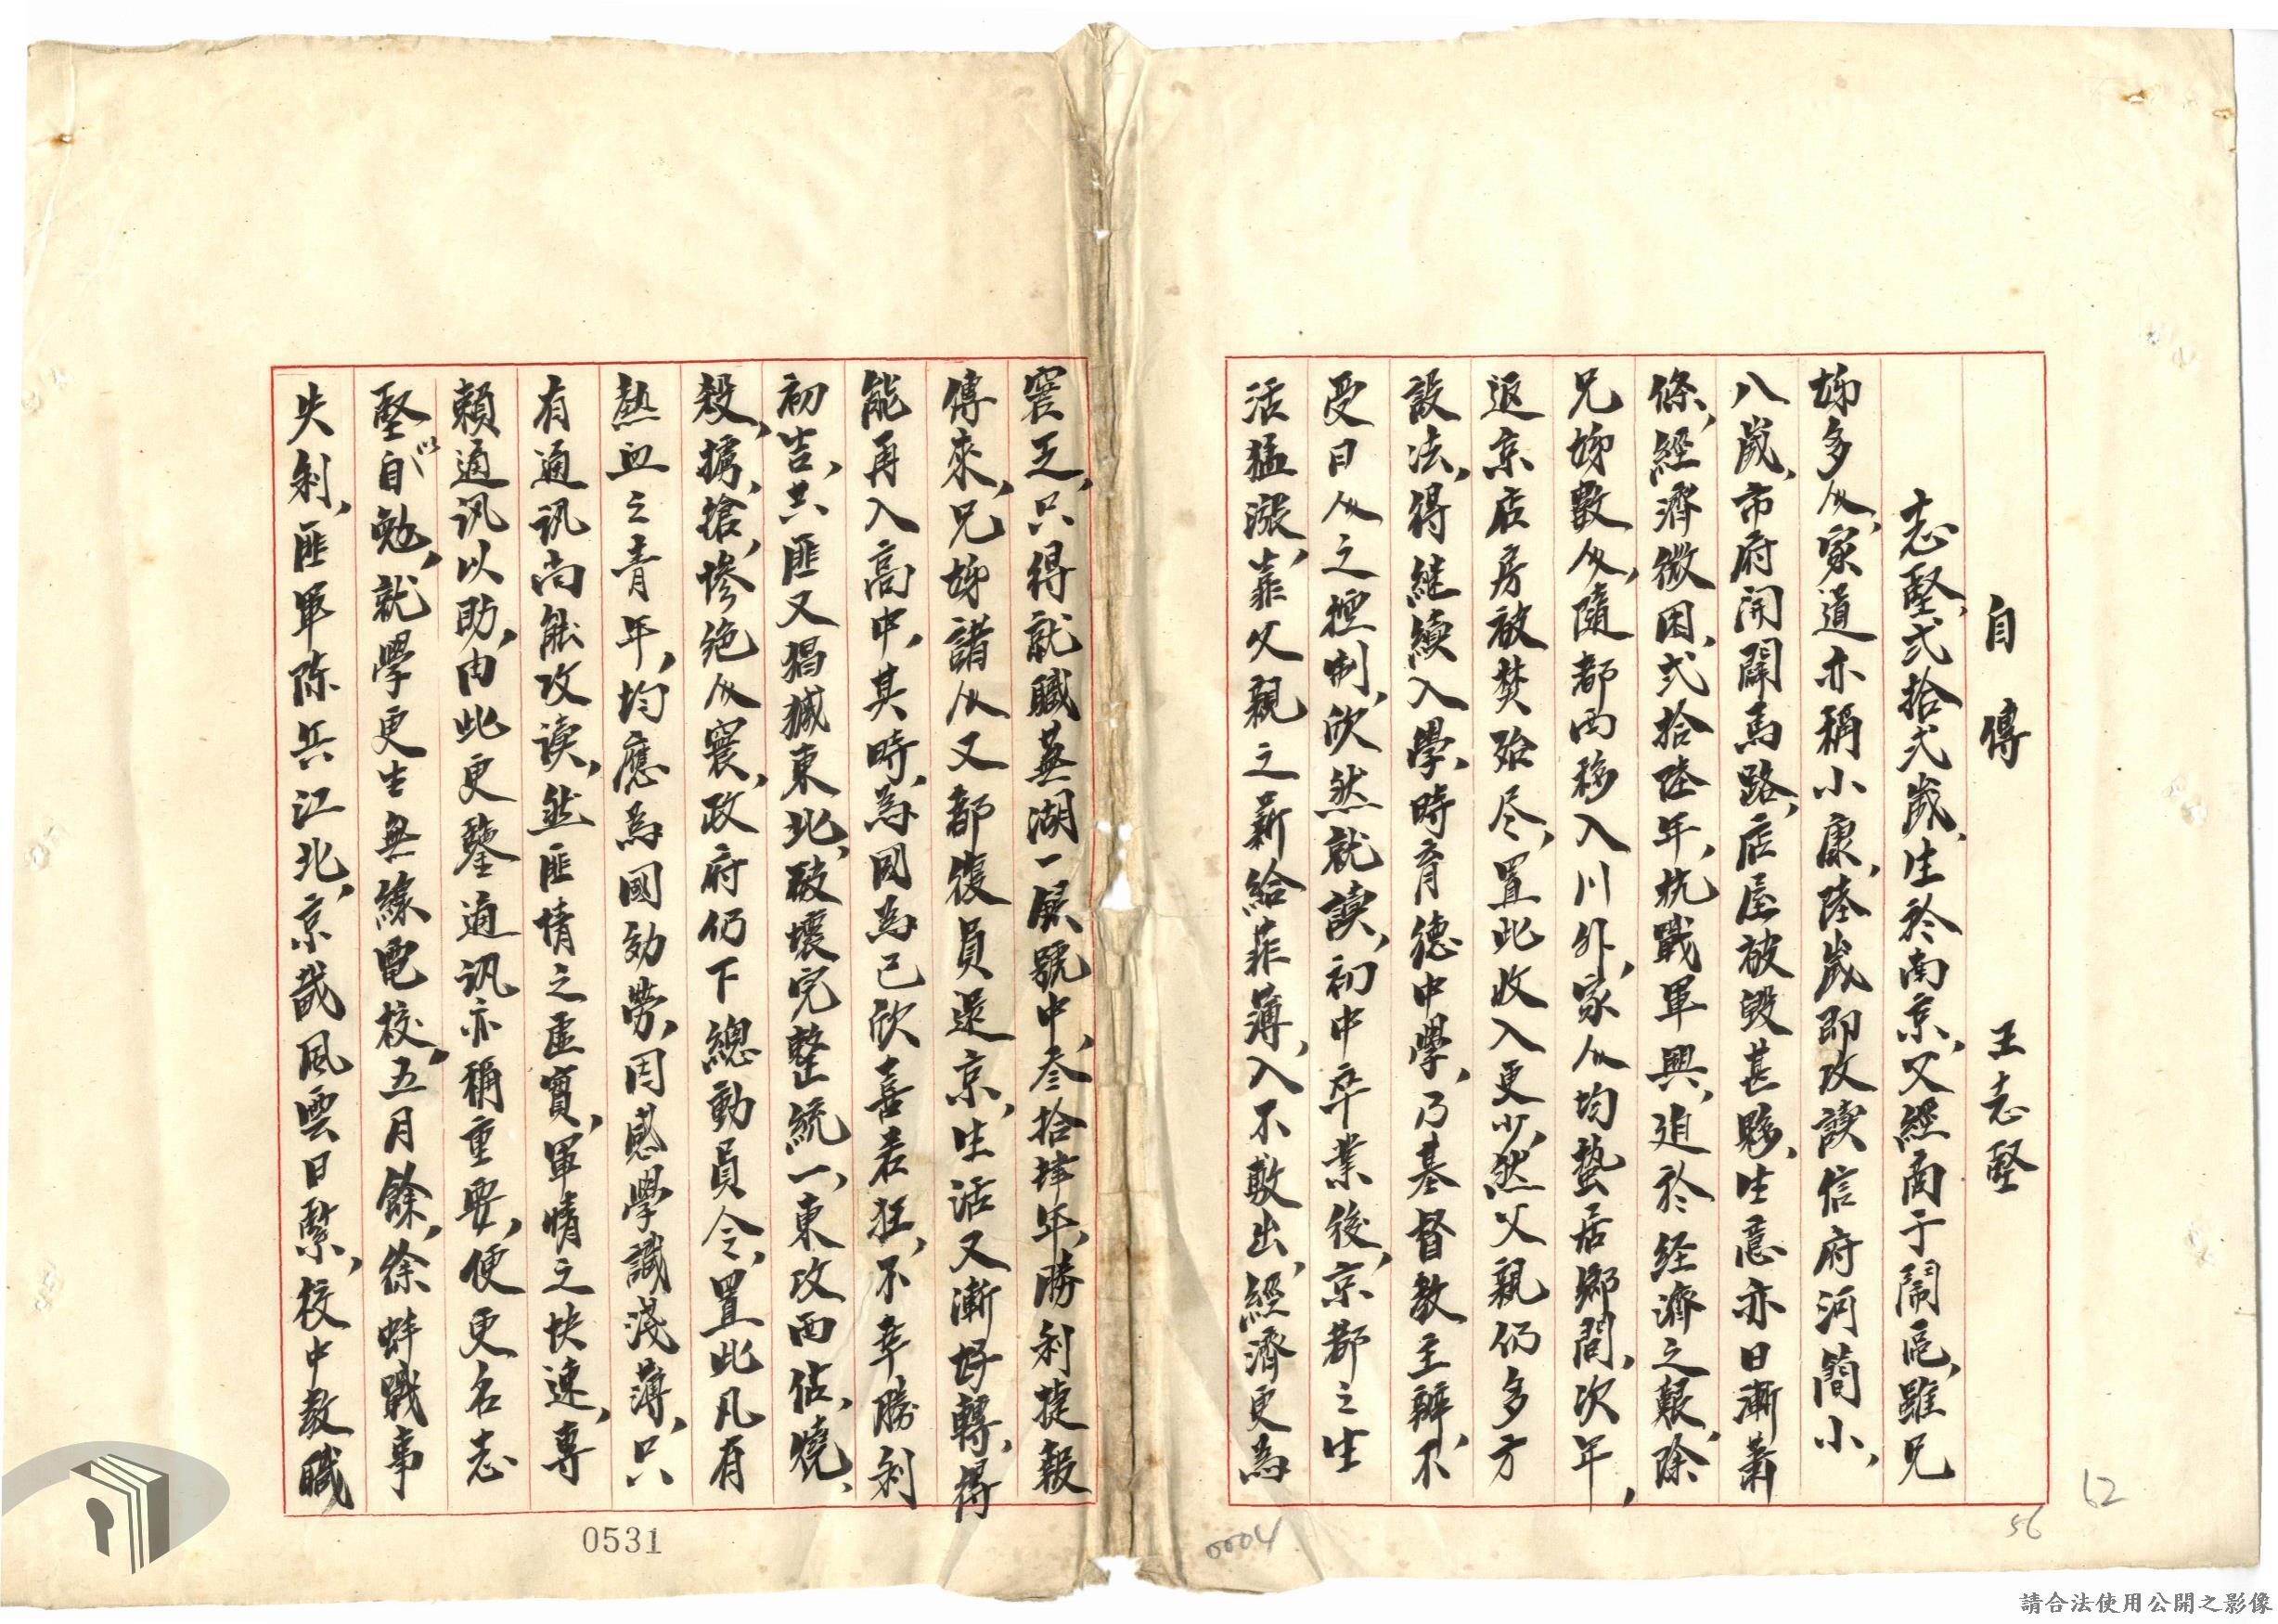 自傳 王志堅
志堅，弍拾弍歲，生於南京，父經商于鬧區，雖兄
姊多人，家道亦稱小康，陸歲即攻讀信府河簡小，
八歲，市府開闢馬路，店屋被毀甚夥，生意亦日漸蕭
條，經濟微困，弍拾陸年，抗戰軍興，迫於经濟之艱，除
兄姊數人，隨都西移入川外，家人均蟄居鄉間，次年，
返京店房被焚殆尽，置此收入更少，然父親仍多方
設法，得継續入學，時育德中學，乃基督教主辦，不
受日人之控制，欣然就讀，初中卒業後，京都之生
活猛漲，靠父親之薪給菲薄，入不敷出，經濟更為
窘乏，只得就職蕪湖一廠號中，叁拾肆年，勝利捷報
傳來，兄姊諸人又都復員還京，生活又漸好轉，得
能再入高中，其時，為國為己欣喜若狂，不幸勝利
初告，共匪又猖獗東北，破壞完整統一，東攻西佔，燒，
殺，擄，搶，慘絶人寰，政府仍下總動員令，置此凡有
熱血之青年，均應為國効勞，因感學識淺薄，只
有通訊尚能攻读，然匪情之虛實，軍情之快速，專
賴通訊以助，由此更鑒通訊亦稱重要，便更名志
堅以自勉，就學更生無線電校，五月餘，徐蚌戰事
失利，匪軍陈兵江北，京畿風雲日緊，校中教職
0531
0004
56
62
請合法使用公開之影像